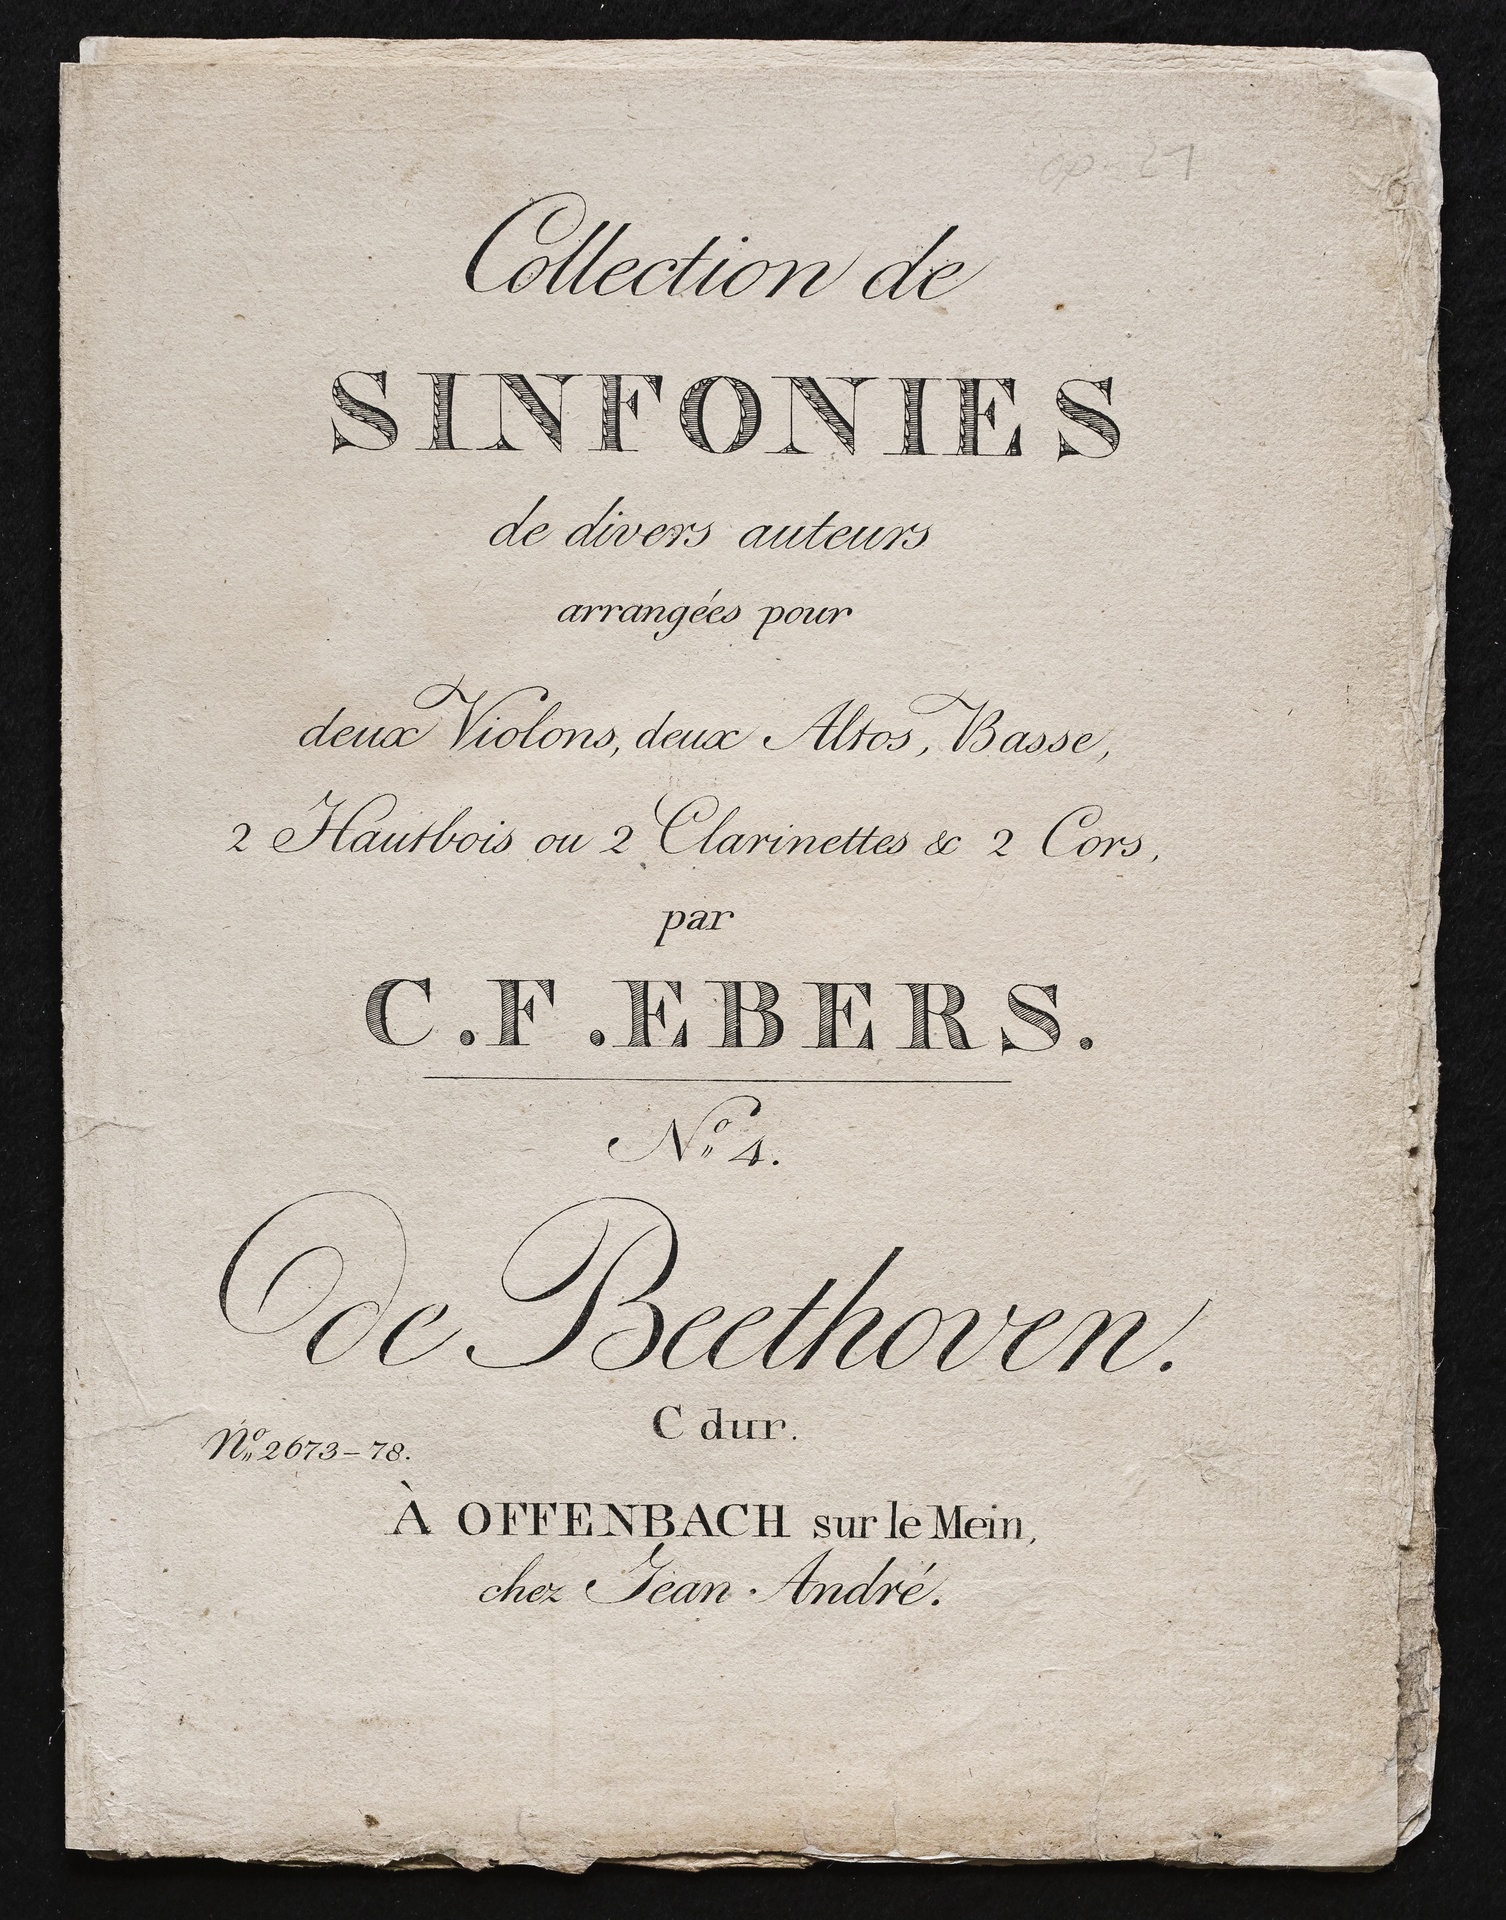 op. 21
Collection de
SINFONIES
de divers auteurs
arrangées pour
deux Violons, deux Altos, Basse,
2 Hautbois ou 2 Clarinettes & 2 Cors,
par
C. F. EBERS.
No 4.
de Beethoven.
C dur.
No 2673-78.
À OFFENBACH sur le Mein,
chez Jean André.